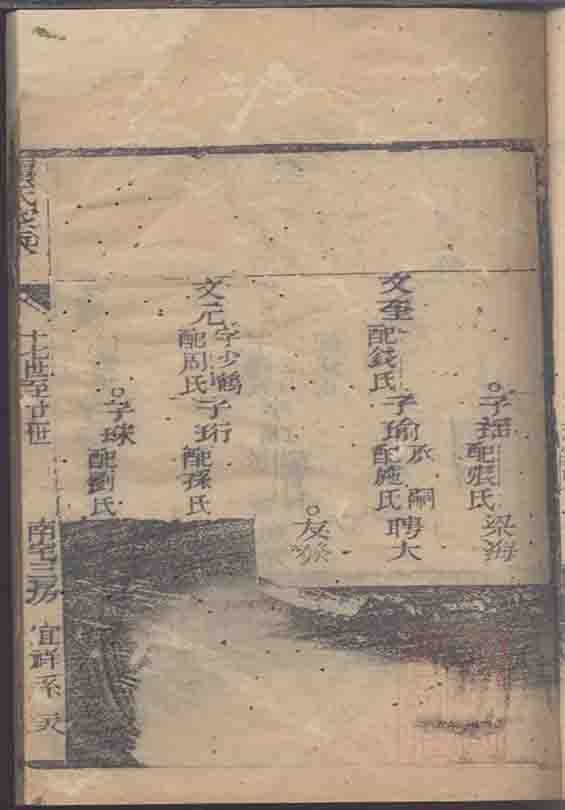 子瑶 配張氏 梁海
文奎 配錢氏 子瑜 承嗣 配施氏 聘大
友
文元 字少鶴 配周氏 子珩 配孫氏
子球 配劉氏
十七世至廿世 南宅三房 宜祥系